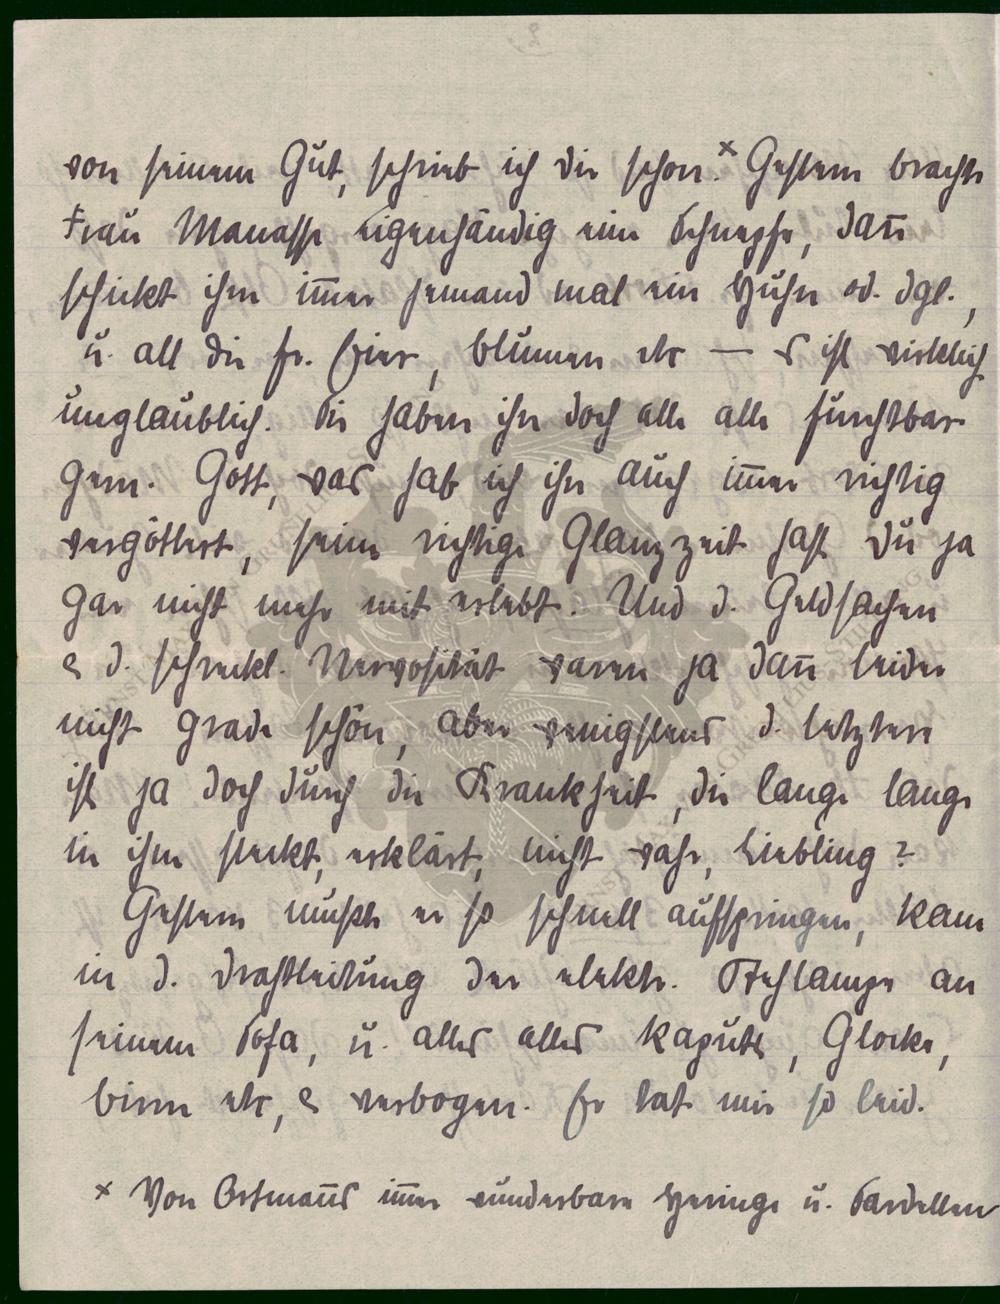 von seinem Gut, schrieb ich dir schon.x Gestern brachte
Frau Manasse eigenhändig eine Schnepfe, dan̄
schickt ihm im̄er jemand mal ein Huhn od. dgl.,
u. all die fr. Eier, Blumen etc — es ist wirklich
unglaublich. Sie haben ihn doch alle alle furchtbar
gern. Gott, was hab ich ihn auch im̄er richtig
vergöttert, seine richtige Glanzzeit hast Du ja
gar nicht mehr mit erlebt. Und d. Geldsachen
& d. schreckl. Nervosität waren ja dan̄ leider
nicht grade schön, aber wenigstens d. letztere
ist ja doch durch die Krankheit, die lange lange
in ihm steckt, erklärt, nicht wahr, Liebling?
Gestern mußte er so schnell aufspringen, kam
in d. Drahtleitung der elektr. Stehlampe an
seinem Sofa, u. alles alles kaputt, Glocke,
Birne etc, & verbogen. Er tat mir so leid.
x Von Ostman̄s im̄er wunderbare Heringe u. Sardellen